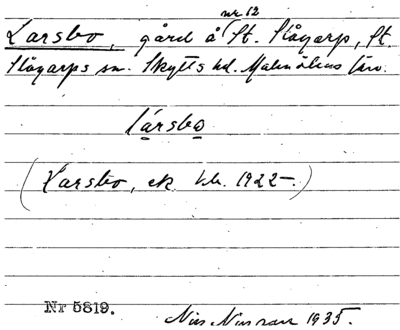 nr 12
Larsbo, gård å St. Slågarp, St.
Slågarps sn. Skytts hd. Malmöhus län.
lársbo
(Larsbo, ek. kb. 1922–.)
Nr 5819.
Nils Nilsson 1935.